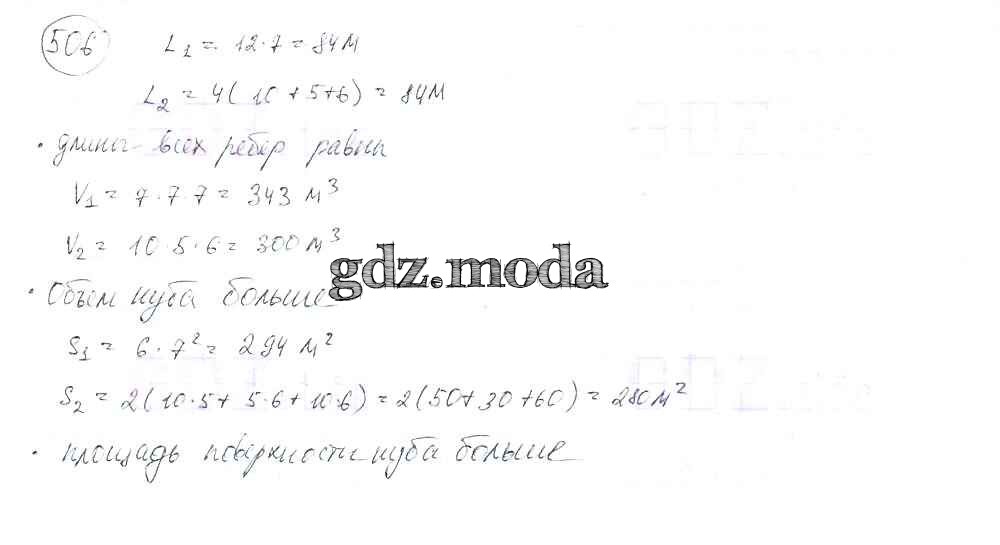 506
L₁ = 12·7 = 84м
L₂ = 4(10+5+6) = 84м
· длины всех ребер равны
V₁ = 7·7·7 = 343 м³
V₂ = 10·5·6 = 300 м³
gdz.moda
· Объем куба больше
S₁ = 6·7² = 294 м²
S₂ = 2(10·5+5·6+10·6) = 2(50+30+60) = 280м²
· площадь поверхности куба больше